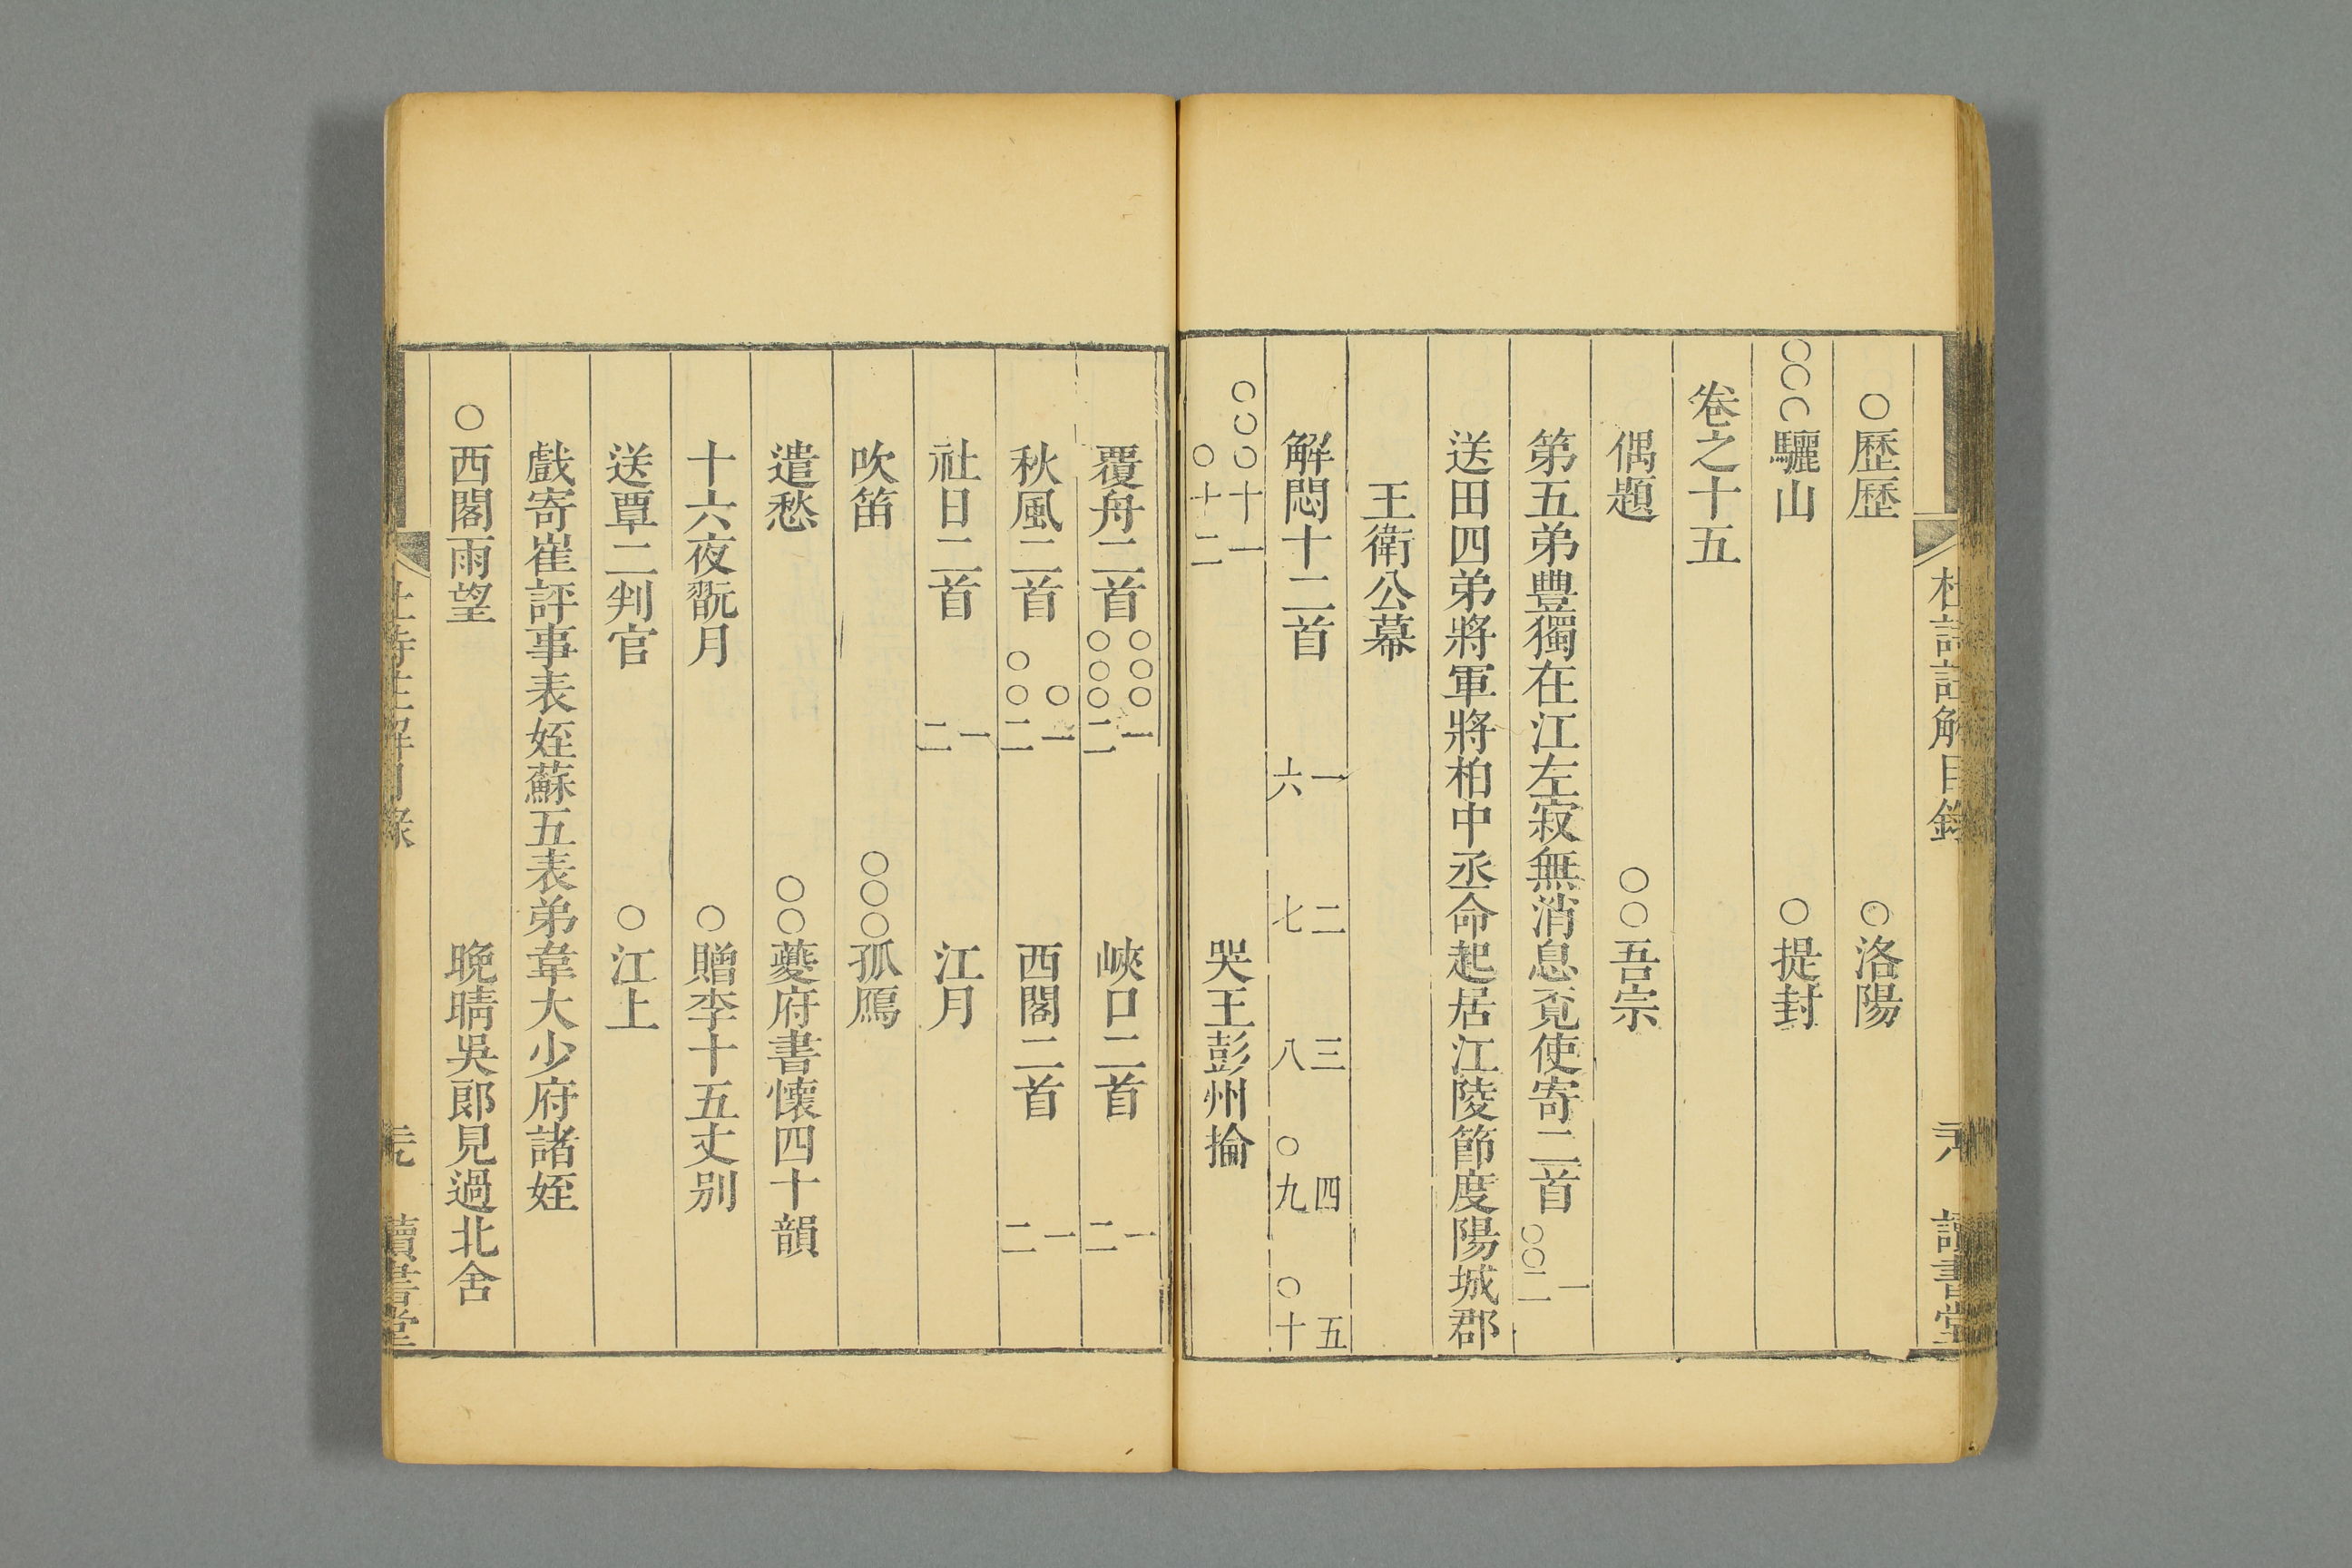 ○歷歷　○洛陽
○○○驪山　○提封
卷之十五
偶題　○○吾宗
第五弟豐獨在江左寂無消息覔使寄二首 一 ○○二
送田四弟將軍將柏中丞命起居江陵節度陽城郡
王衛公幕
解悶十二首 一 二 三 四 五 六 七 八 ○九 ○十
○○○十一 ○十二　哭王彭州掄
覆舟二首 ○○○一 ○○○二　峽口二首 一 二
秋風二首 ○一 ○○二　西閣二首 一 二
社日二首 一 二　江月
吹笛　○○○孤鴈
遣愁　○○夔府書懷四十韻
十六夜翫月　○贈李十五丈别
送覃二判官　○江上
戲寄崔評事表姪蘇五表弟韋大少府諸姪
○西閣雨望　晚晴吳郎見過北舍
杜詩註解目錄　讀書堂